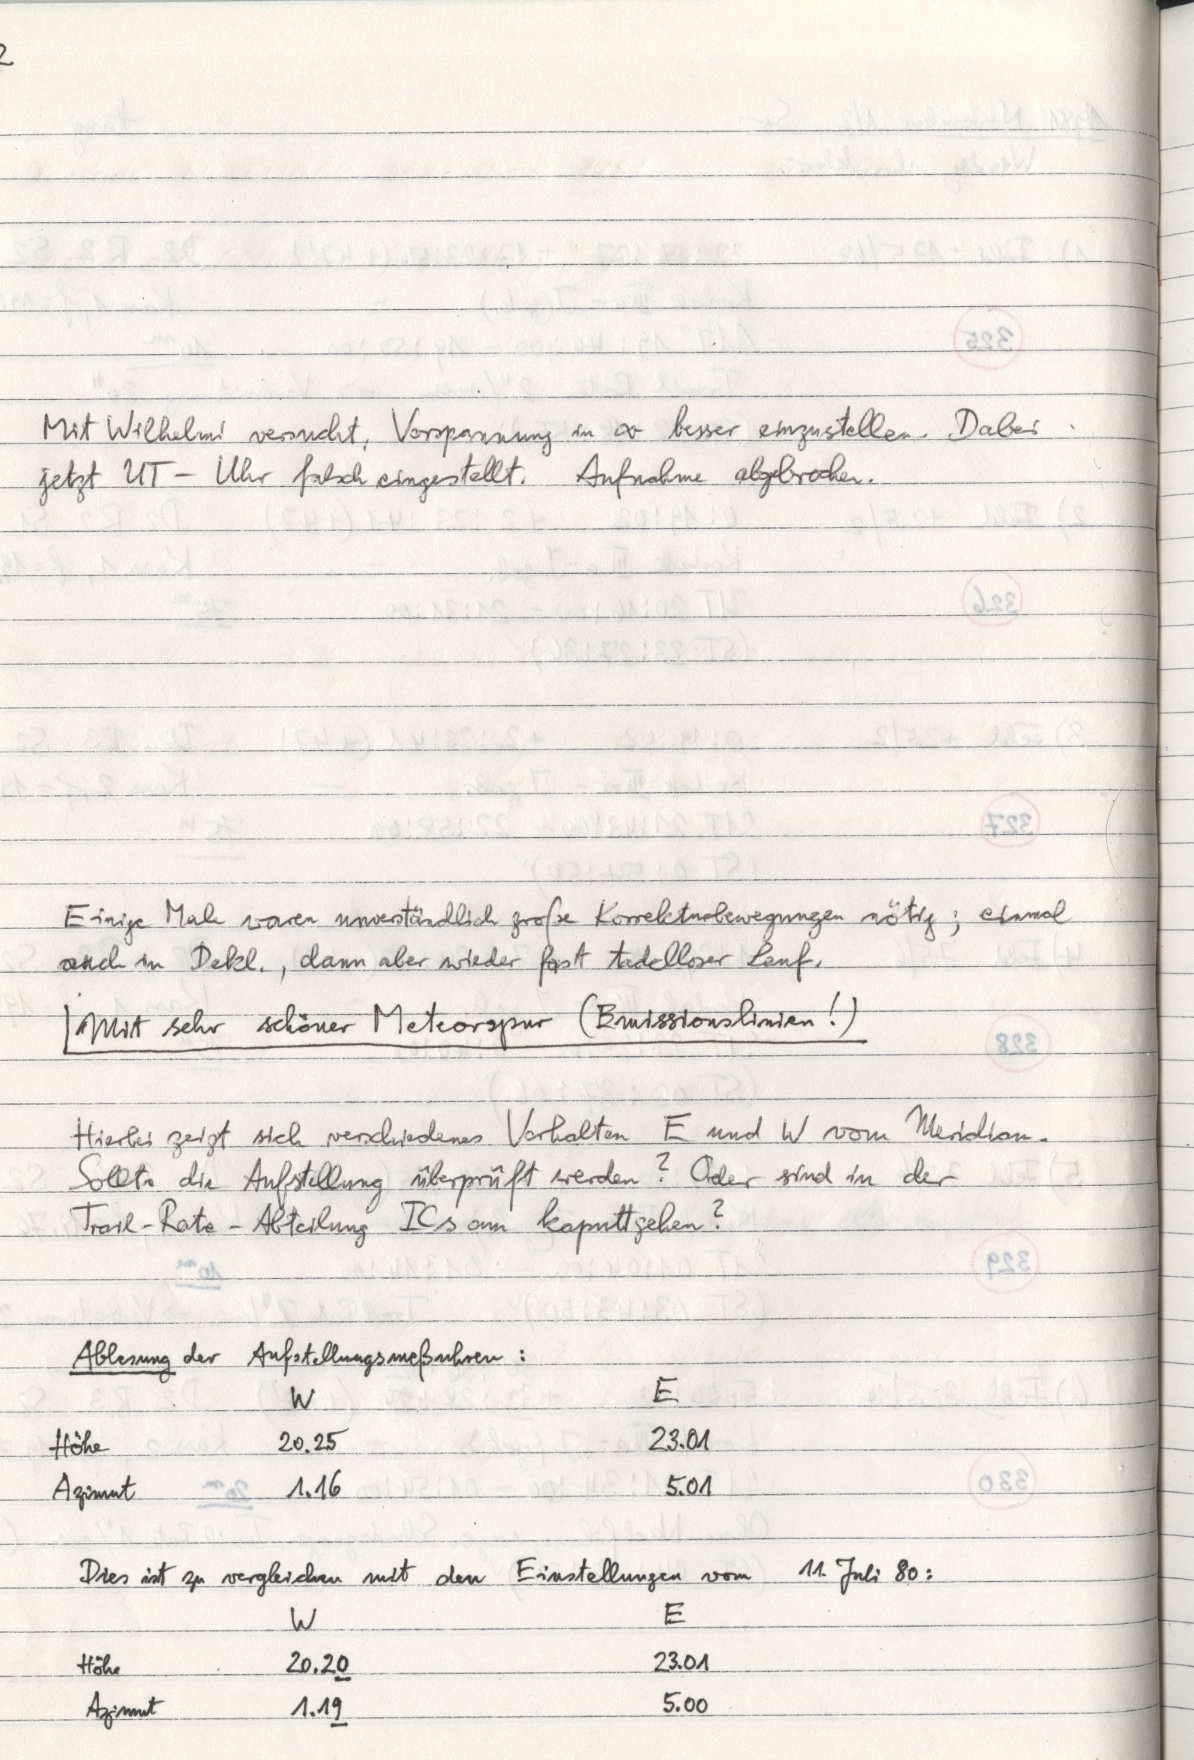 2
Mit Wilhelmi versucht, Vorspannung in α besser einzustellen. Dabei
jetzt UT - Uhr falsch eingestellt. Aufnahme abgebrochen.
Einige Male waren unverständlich große Korrekturbewegungen nötig; einmal
auch in Dekl., dann aber wieder fast tadelloser Lauf.
Mit sehr schöner Meteorspur (Emissionslinien!)
Hierbei zeigt sich verschiedenes Verhalten E und W vom Meridian.
Sollte die Aufstellung überprüft werden? Oder sind in der
Trail-Rate-Abteilung ICs am kaputtgehen?
Ablesung der Aufstellungsmeßuhren:
W E
Höhe 20.25 23.01
Azimut 1.16 5.01
Dies ist zu vergleichen mit den Einstellungen vom 11. Juli 80:
W E
Höhe 20.20 23.01
Azimut 1.19 5.00